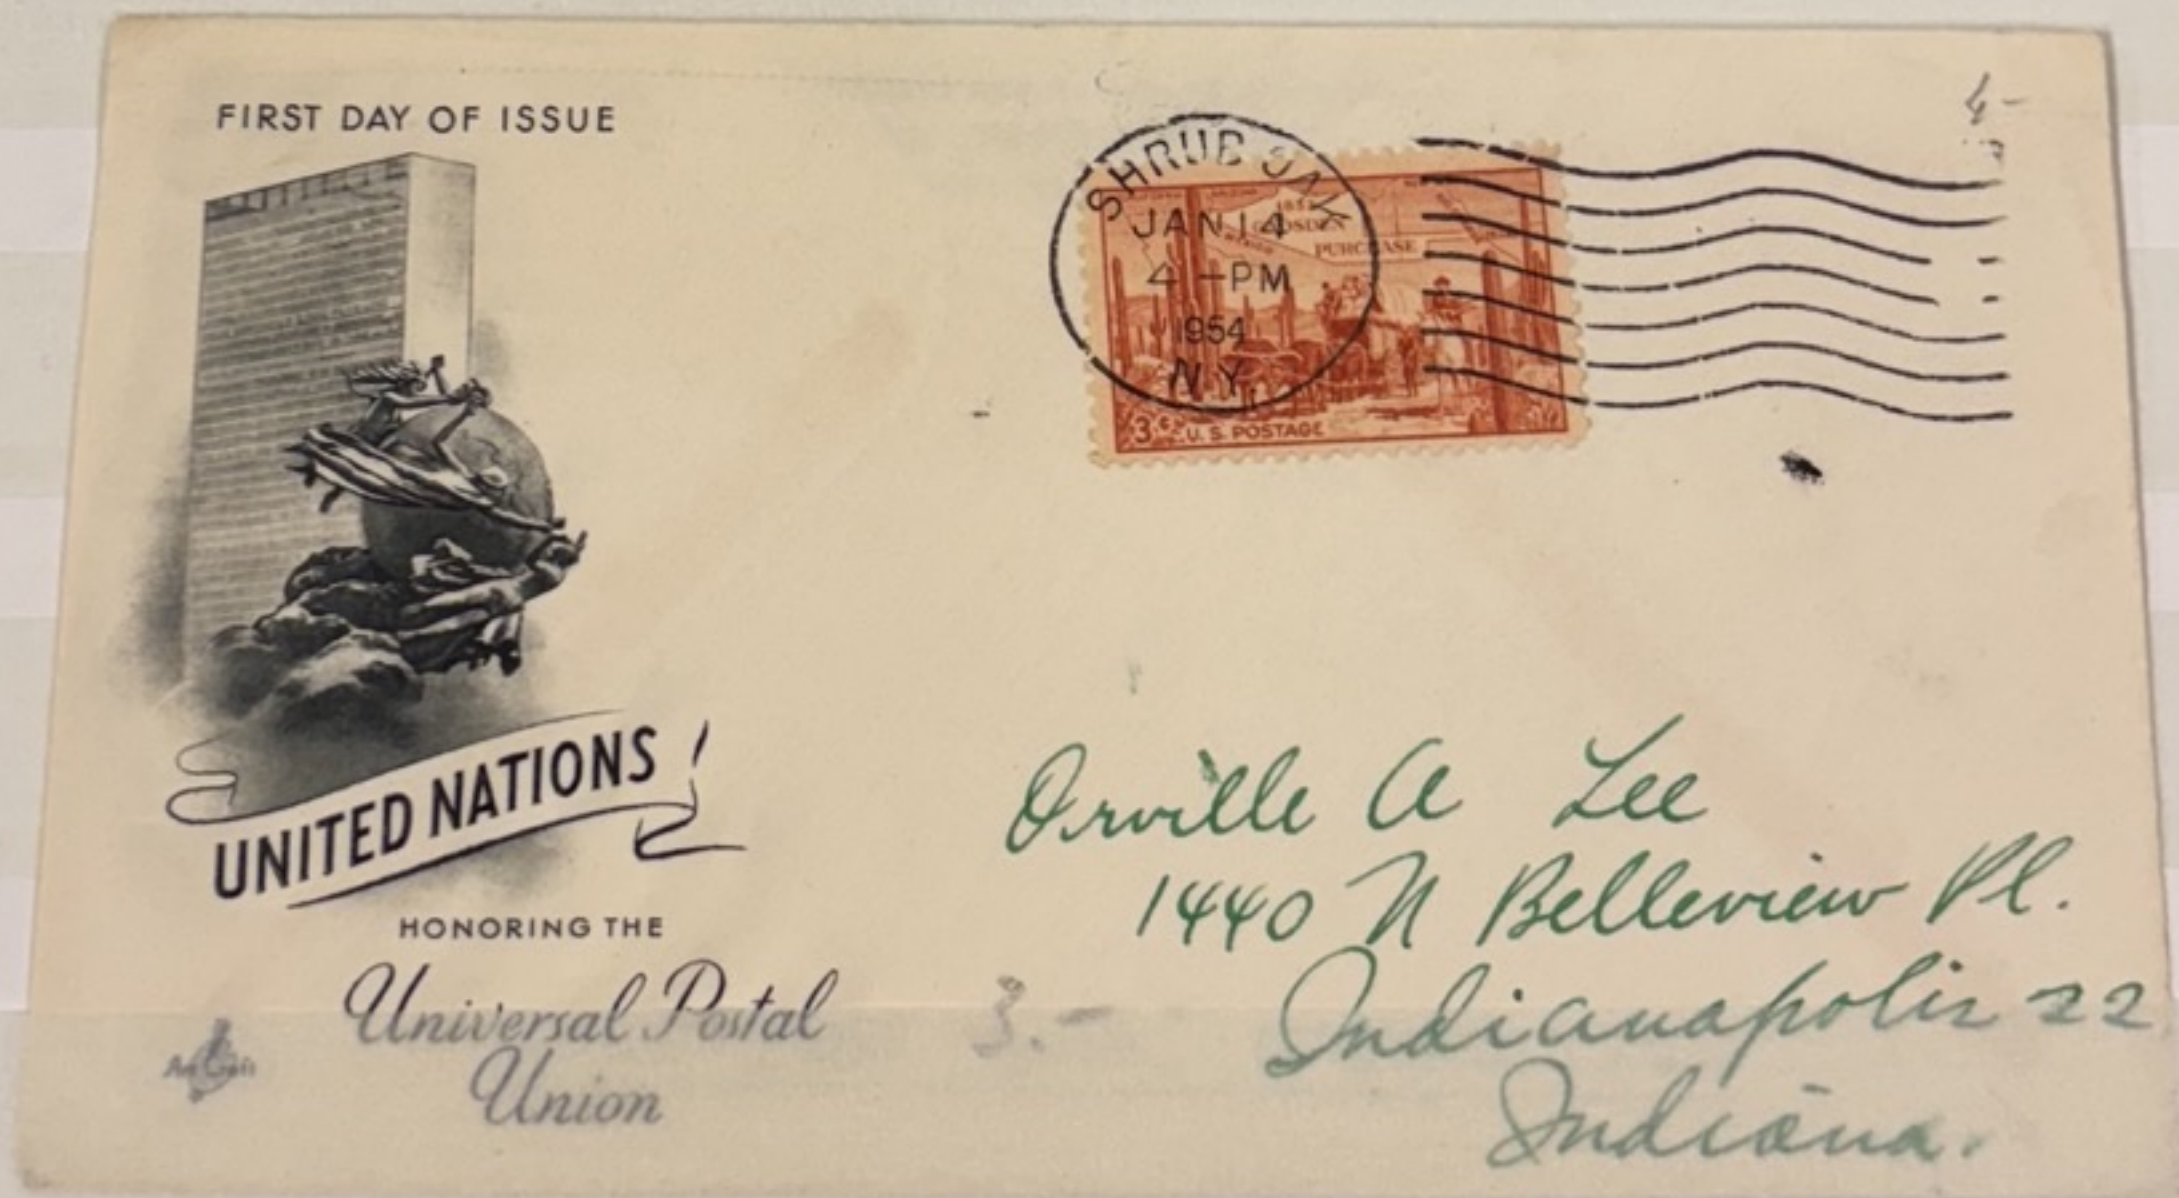 FIRST DAY OF ISSUE
4-
SHRUB OAK
JAN 14
4 -PM
1954
N.Y.
1853
GADSDEN
PURCHASE
3¢ U. S. POSTAGE
UNITED NATIONS
HONORING THE
Universal Postal
Union
Art Craft
3.-
Orville A Lee
1440 N Belleview Pl.
Indianapolis 22
Indiana.